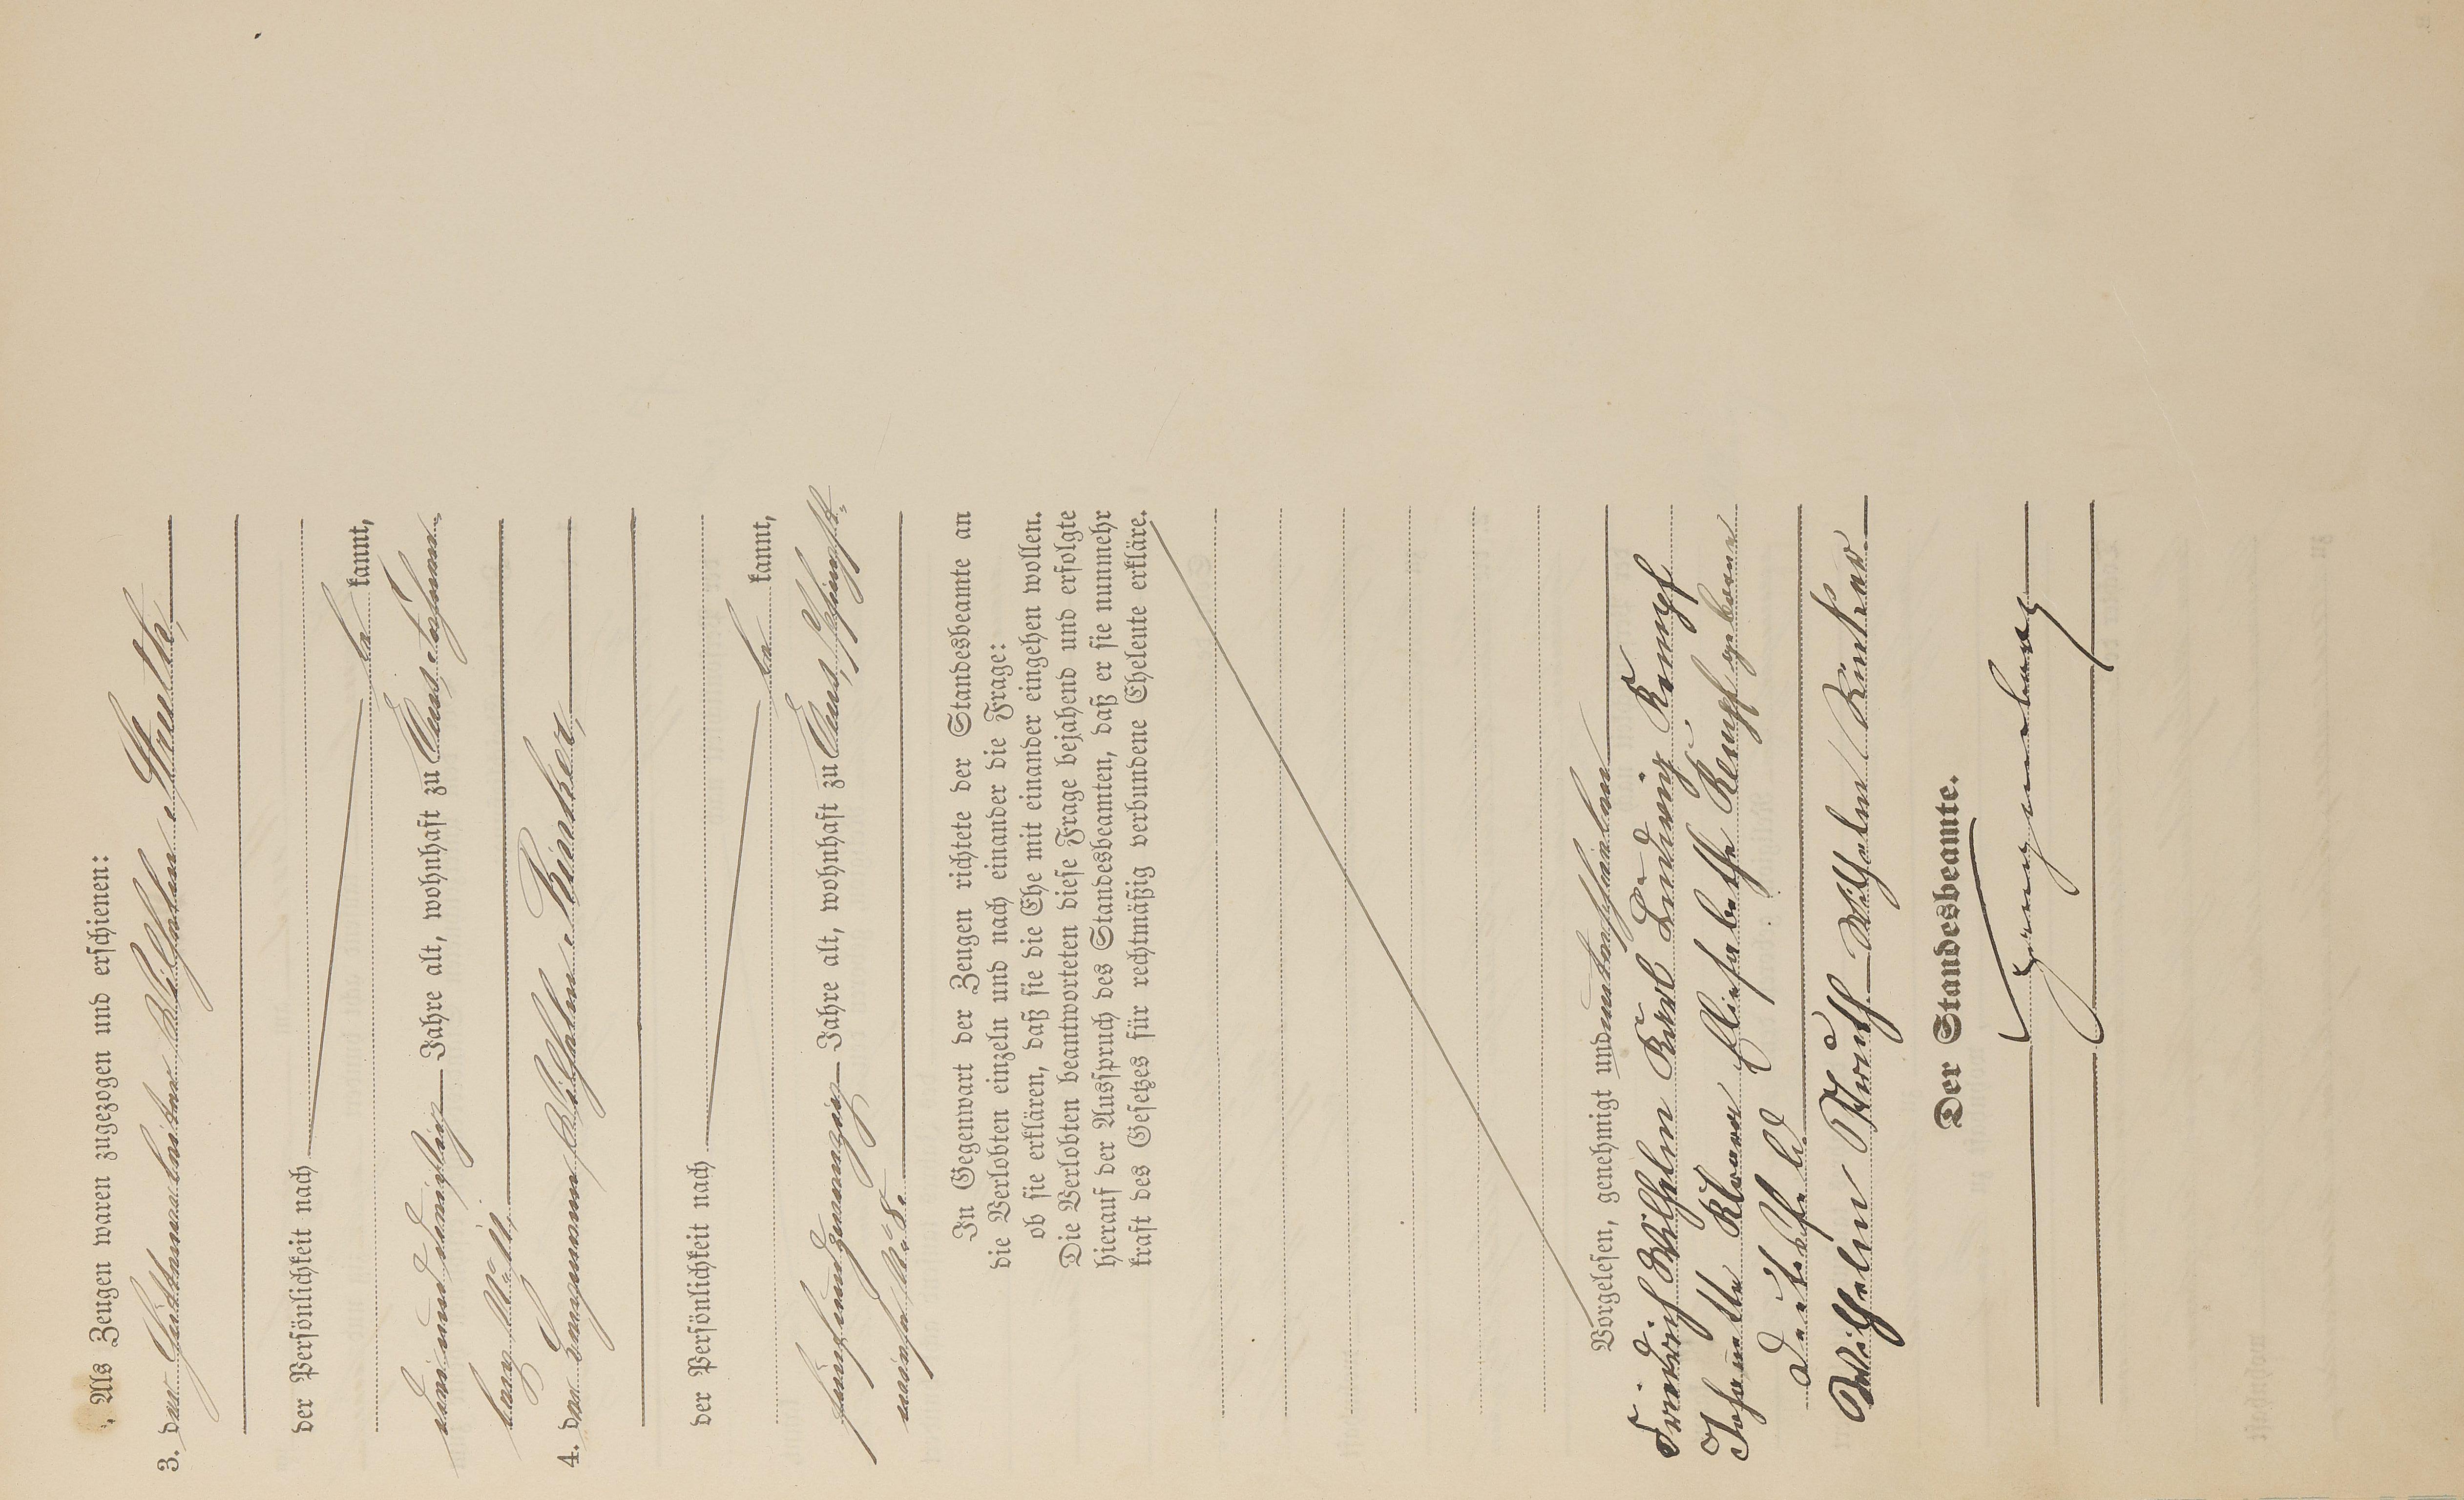 Als Zeugen waren zugezogen und erschienen:
3. der Wilhelm Struth,
der Persönlichkeit nach
be kannt,
drei und dreißig Jahre alt, wohnhaft zu Ems,
4. der Bergmann Wilhelm Kürtzer,
der Persönlichkeit nach
be kannt,
fünfundzwanzig Jahre alt, wohnhaft zu Ems,
No. 8.
In Gegenwart der Zeugen richtete der Standesbeamte an
die Verlobten einzeln und nach einander die Frage:
ob sie erklären, daß sie die Ehe mit einander eingehen wollen.
Die Verlobten beantworteten diese Frage bejahend und erfolgte
hierauf der Ausspruch des Standesbeamten, daß er sie nunmehr
kraft des Gesetzes für rechtmäßig verbundene Eheleute erkläre.
Vorgelesen, genehmigt und unterschrieben
Friedrich Wilhelm Karl Ludwig Kempf
Johanette Klara Elisabethe Kempf geborene
Wilhelm Struth Wilhelm
Der Standesbeamte.